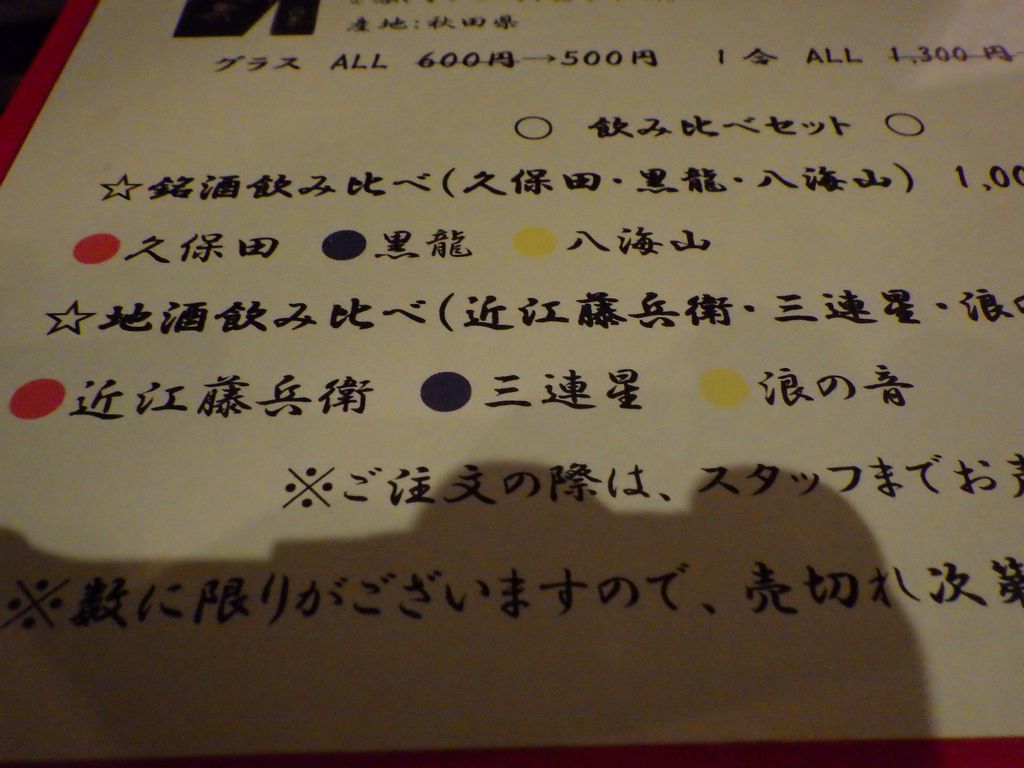 産地:秋田県
グラス ALL 600円→500円 1合 ALL 1,300円
○ 飲み比べセット ○
☆銘酒飲み比べ(久保田・黒龍・八海山) 1,00
●久保田 ●黒龍 ●八海山
☆地酒飲み比べ(近江藤兵衛・三連星・浪の
●近江藤兵衛 ●三連星 ●浪の音
※ご注文の際は、スタッフまでお声
※数に限りがございますので、売切れ次第